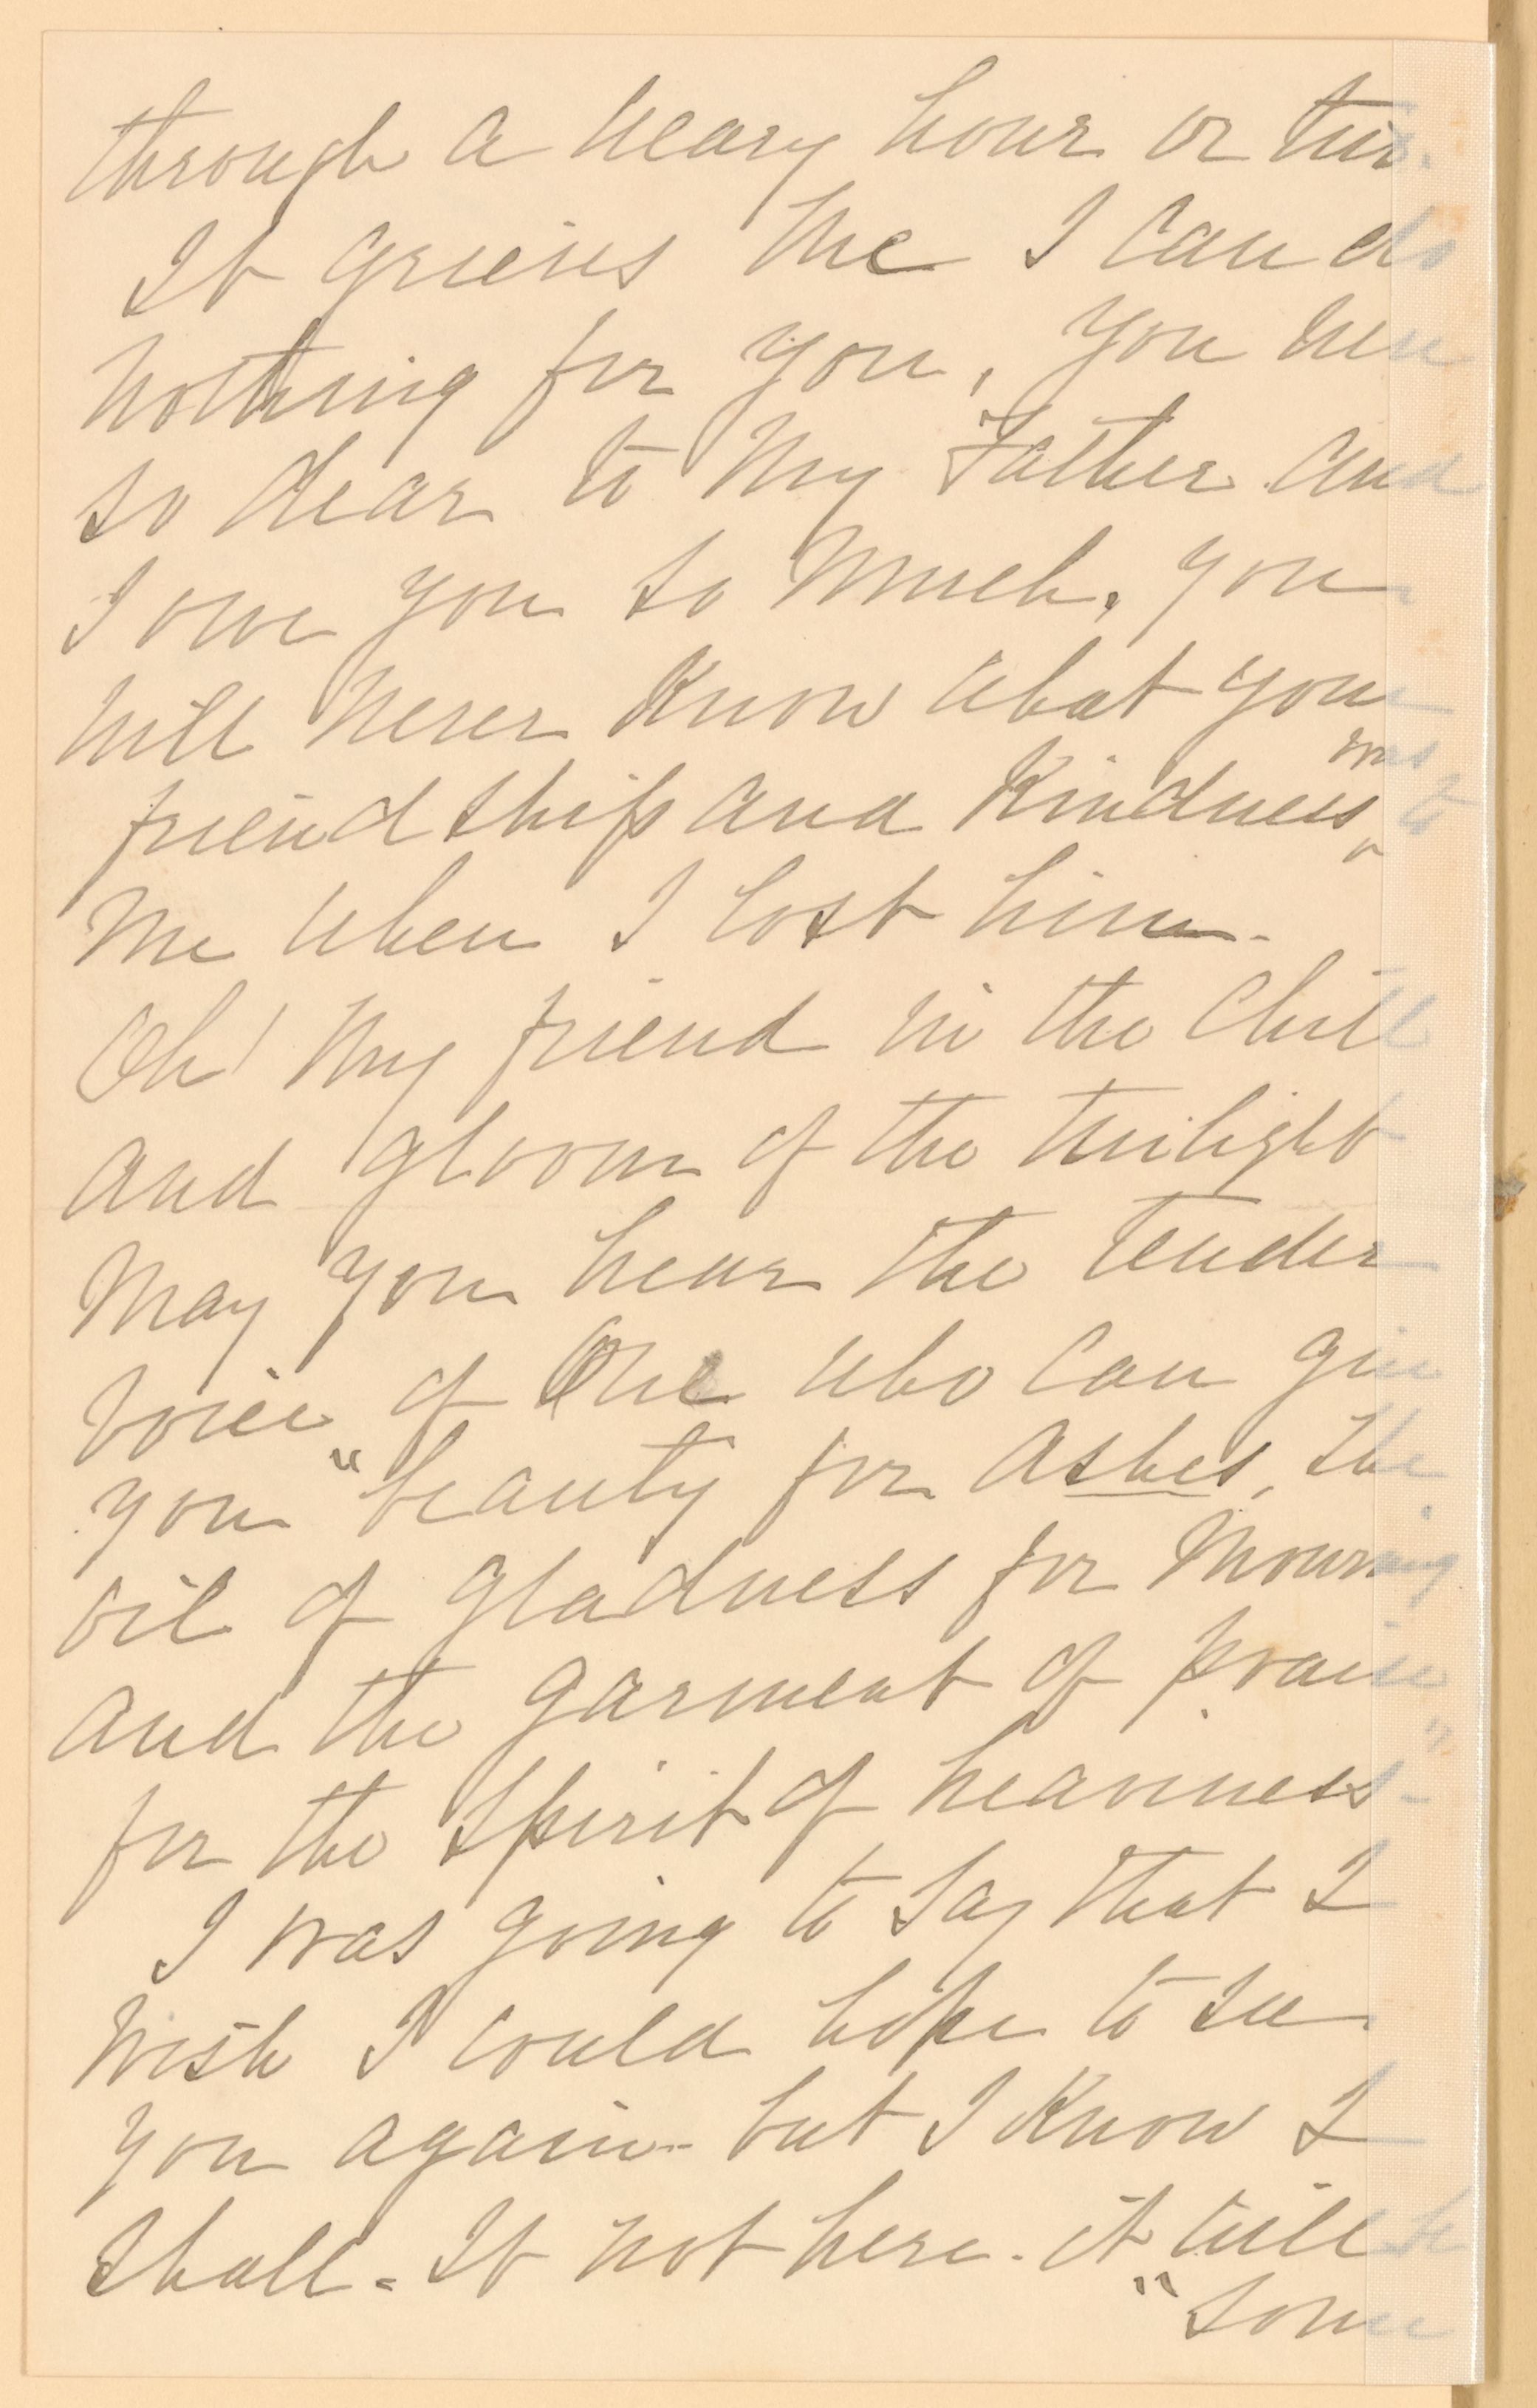 through a weary hour or two.
It grieves me I can do
nothing for you, you were
so dear to my Father and
I owe you so much, you
will never know what your
was
friendship and kindness ‸ to
me when I lost him -
Oh! my friend in the chill
and gloom of the twilight
may you hear the tender
voice of One who can give
you "beauty for ashes, the
oil of gladness for mourning
and the garment of praise
for the spirit of heaviness" -
I was going to say that I
wish I could hope to see
you again - but I know I
shall - If not here - it will be
"Some